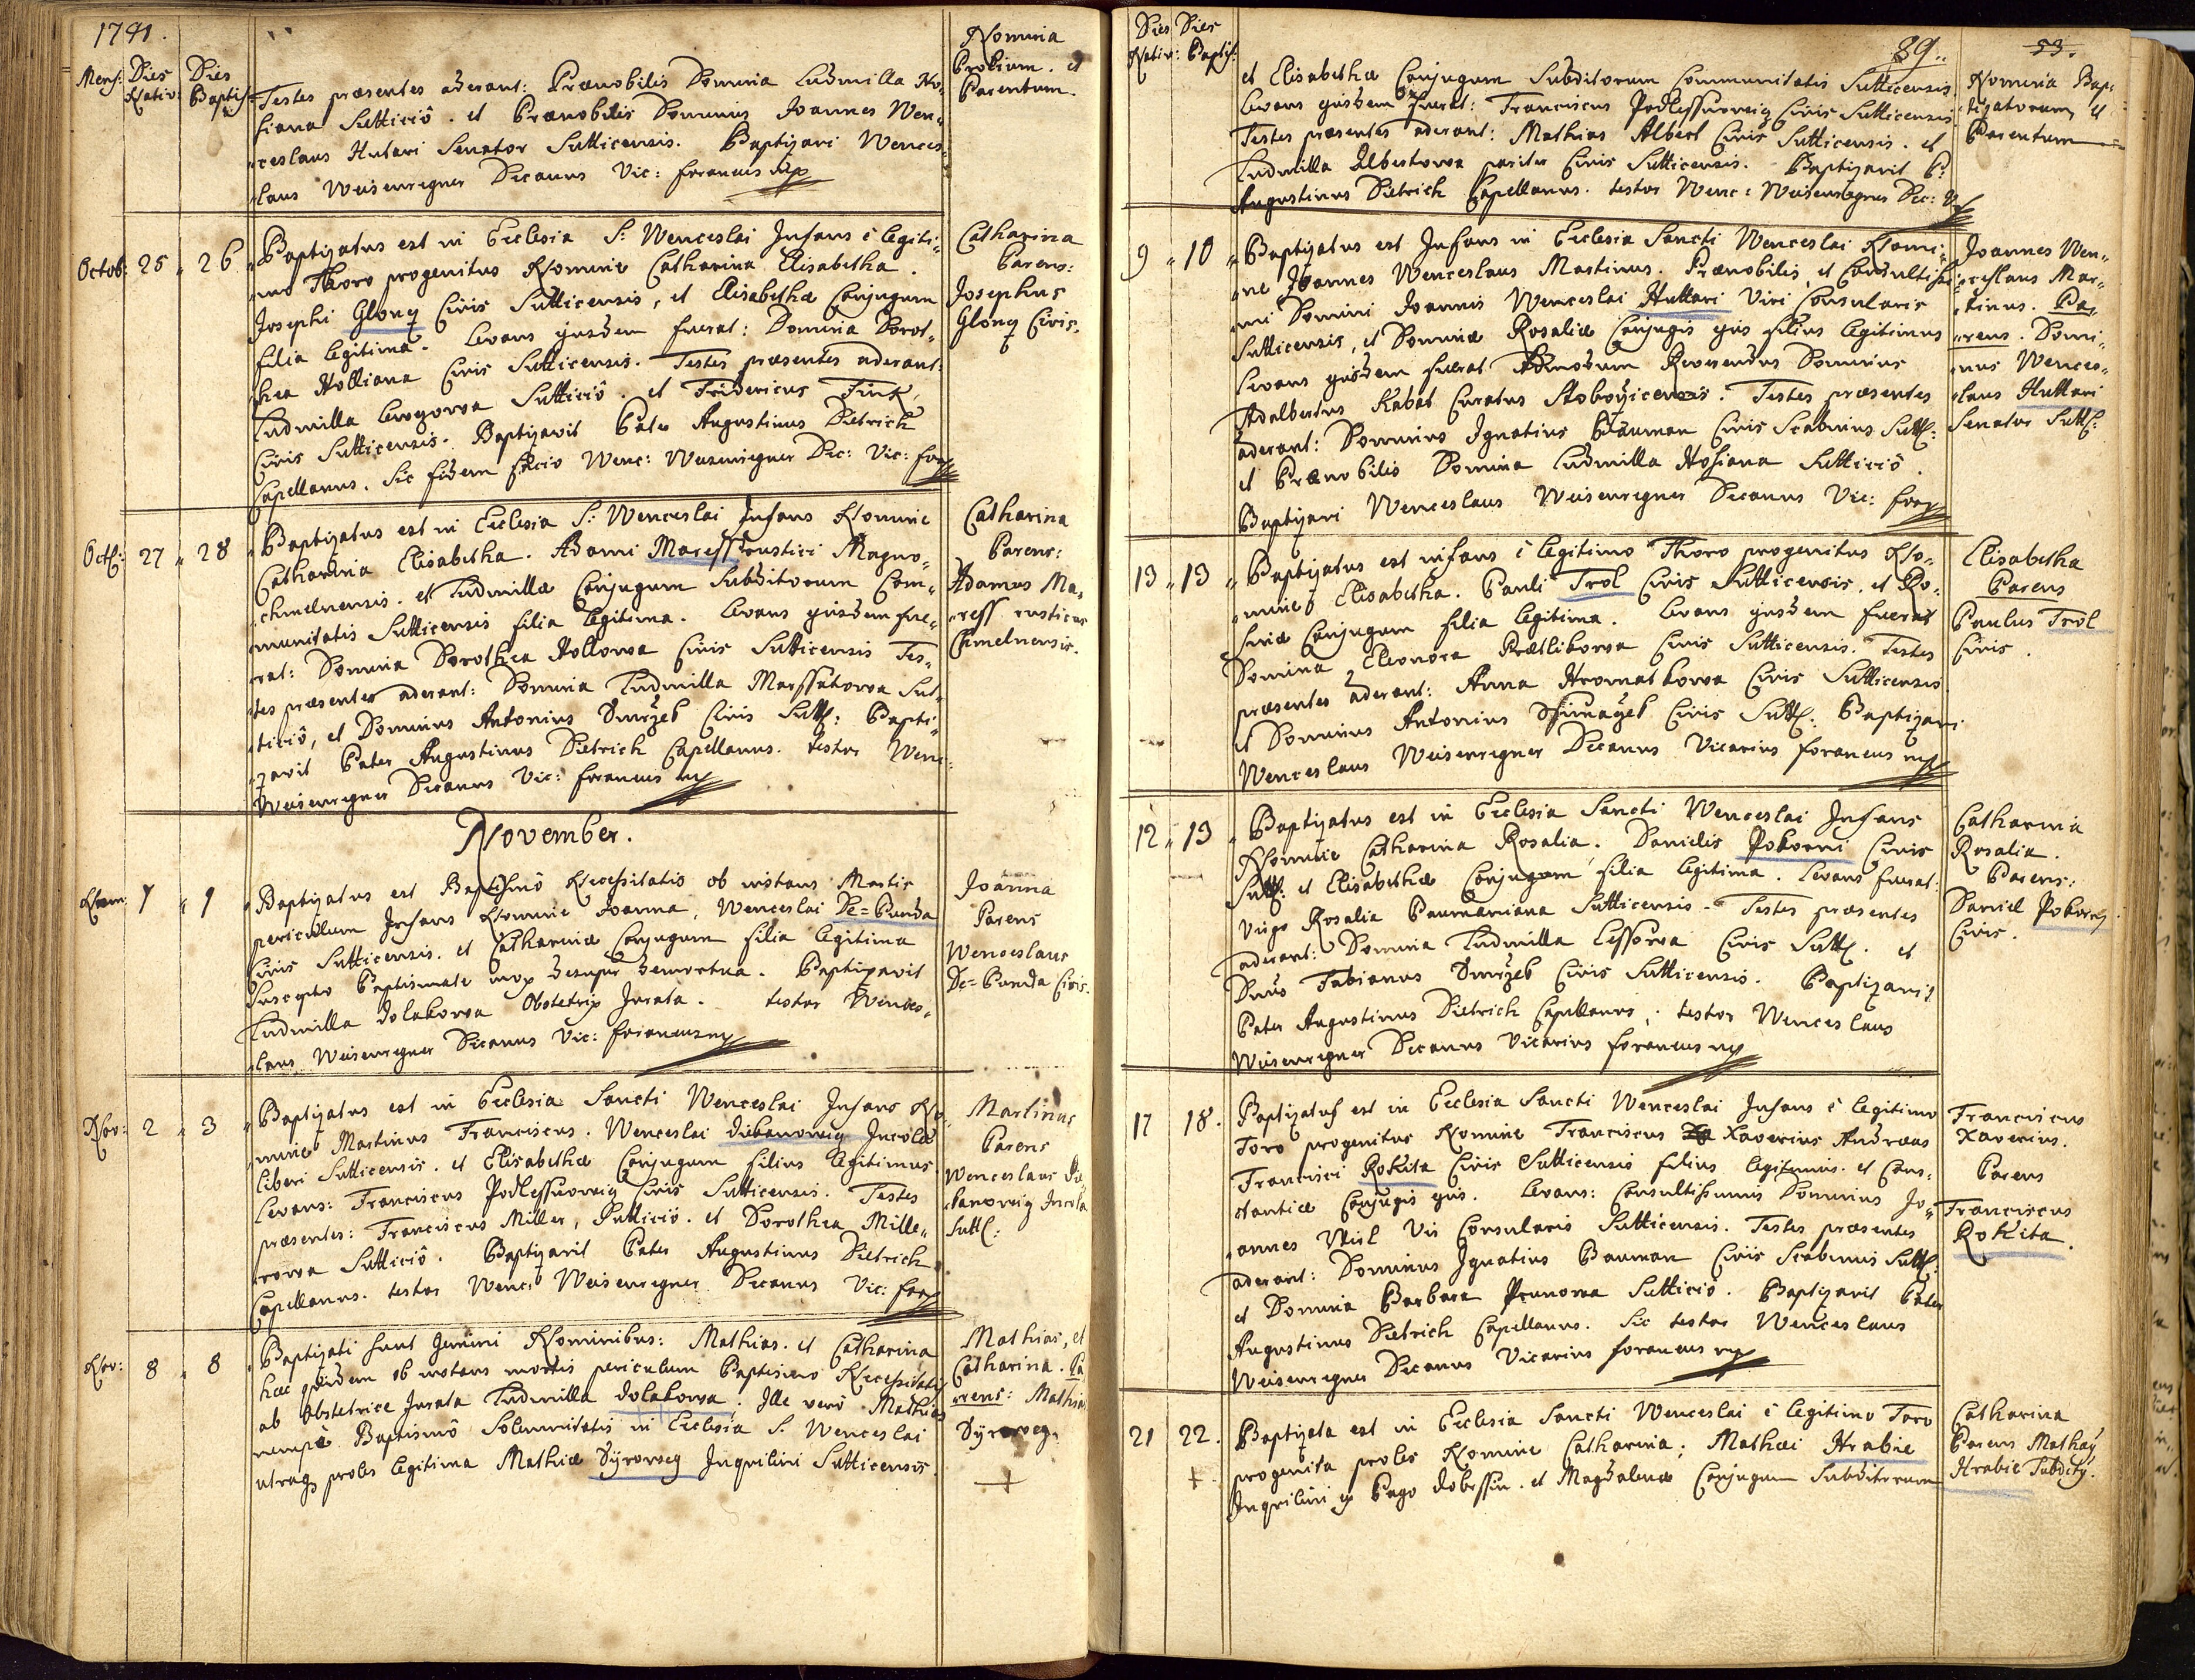 1741.
Mens: Dies Nativ: Dies Baptis:
Nomina
Prolium. et
Parentum.
Testes præsentes aderant: Prænobilis Domina Ludmilla Ho„
siana Sutticiô. et Prænobilis Dominus Joannes Wen„
„ceslaus Hutari Senator Sutticensis. Baptizavi Wences„
„laus Weisenregner Decanus Vic: foraneus mp
Octob: 25 „ 26 „
Baptizatus est in Ecclesia S: Wenceslai Infans è legiti„
„mo Thoro progenitus Nomine Catharina Elisabetha.
Josephi Glonq Civis Sutticensis, et Elisabethæ Conjugum
filia legitima. Levans ejusdem fuerat: Domina Dorot„
„hea Holliana Civis Sutticensis. Testes præsentes aderant:
Ludmilla Sutticiô. et Fridericus Fink,
Civis Sutticensis. Baptizavit Pater Augustinus Dietrich
Capellanus. Sic fidem facio Wenc: Weisenregner Dec: Vic: for
Catharina
Parens:
Josephus
Glonq Civis.
Oct: 27 „ 28 „
Baptizatus est in Ecclesia S: Wenceslai Infans Nomine
Catharina Elisabetha. Adami Maress rustici Magno„
„chmelnensis. et Ludmillæ Conjugum Subditorum Com„
„munitatis Sutticensis filia legitima. Levans ejusdem fue„
„rat: Domina Dorothea Hollowa Civis Sutticensis Tes„
„tes præsentes aderant: Domina Ludmilla Marssatowa Sut„
„ticiô, et Dominus Antonius Smrzeb Civis Sutt: Bapti„
„zavit Pater Augustinus Dietrich Capellanus. testor Wenc:
Weisenregner Decanus Vic: foraneus mp
Catharina
Parens:
Adamus Ma„
„ress rusticus
Chmelnensis.
November.
Novem: 1 „ 1 „
Baptizatus est Baptismô Necessitatis ob instans Mortis
periculum Infans Nomine Joanna, Wenceslai De=Punda
Civis Sutticensis. et Catharinæ Conjugum filia legitima
suscepto Baptismate mox desuper demortua. Baptizavit
Ludmilla dolakowa Obstetrix Jurata. testor Wences„
„laus Weisenregner Decanus Vic: foraneus mp
Joanna
Parens
Wenceslaus
De=Punda Civis.
Nov: 2 „ 3 „
Baptizatus est in Ecclesia Sancti Wenceslai Infans No„
„mine Martinus Franciscus. Wenceslai Incolæ
liberi Sutticensis. et Elisabethæ Conjugum filius legitimus.
Levans: Franciscus Podlessnoweig Civis Sutticensis. Testes
præsentes: Franciscus Miller, Sutticiô. et Dorothea Mille„
„rowa Sutticiô. Baptizavit Pater Augustinus Dietrich
Capellanus. testor Wenc: Weisenregner Decanus Vic: for
Martinus
Parens
Wenceslaus
Incola
Sutt:
Nov: 8 „ 8 „
Baptizati sunt Gemini Nominibus: Mathias. et Catharina
hæc quidem ob instans mortis periculum Baptismo Necessitatis
ab Obstetrice Jurata Ludmilla dolakowa. Ille verô Mathias
nempè Baptismô Solemnitatis in Ecclesia S. Wenceslai
utraq proles legitima Mathiæ Syroweg Inquilini Sutticensis.
Mathias, et
Catharina. Pa„
„rens: Mathias
Syroweg.
+
Dies Nativ: Dies Baptis:
89..
53.
Nomina Bap„
„tizatorum, et
Parentum
et Elisabethæ Conjugum Subditorum Communitatis Sutticensis.
Levans ejusdem fuerat: Franciscus Podlessnoweig Civis Sutticensis.
Testes præsentes aderant: Mathias Albert Civis Sutticensis. et
Ludmilla Albertowa pariter Civis Sutticensis. Baptizavit P:
Augustinus Dietrich Capellanus. testor Wenc: Weisenregner Dec: V
9 „ 10 „
Baptizatus est Infans in Ecclesia Sancti Wenceslai Nomi„
„ne Joannes Wenceslaus Martinus. Prænobilis, et Consultissi„
„mi Domini Joannis Wenceslai Huttari Viri Consularis
Sutticensis, et Dominæ Rosaliæ Conjugis ejus filius legitimus
Levans ejusdem fuerat Admodum Reverendus Dominus
Adalbertus Kabat Curatus Testes præsentes
aderant: Dominus Ignatius Bauman Civis Scabinus Sutt:
et Prænobilis Domina Ludmilla Hosiana Sutticiô.
Baptizavi Wenceslaus Weisenregner Decanus Vic: for
Joannes Wen„
„ceslaus Mar„
„tinus. Pa„
„rens. Domi„
„nus Wences„
„laus Huttari
Senator Sutt:
13 „ 13 „
Baptizatus est infans è legitimo Thoro progenitus No„
„mine Elisabetha. Pauli Trol Civis Sutticensis, et
Conjugum filia legitima. Levans ejusdem fuerat
Domina Eleonora Civis Sutticensis. Testes
præsentes aderant: Anna Hromatkowa Civis Sutticensis
et Dominus Antonius Civis Sutt: Baptizavi
Wenceslaus Weisenregner Decanus Vicarius foraneus mp
Elisabetha
Parens
Paulus Trol
Civis.
12 „ 13 „
Baptizatus est in Ecclesia Sancti Wenceslai Infans
Nomine Catharina Rosalia. Danielis Pokorni Civis
Sutt: et Elisabethæ Conjugum filia legitima. Levans fuerat:
Virgo Rosalia Paumaniana Sutticensis. Testes præsentes
aderant: Domina Ludmilla Lessowa Civis Sutt. et
Dnus Fabianus Smrzeb Civis Sutticensis. Baptizavit
Pater Augustinus Dietrich Capellanus, testor Wenceslaus
Weisenregner Decanus Vicarius foraneus mp
Catharina
Rosalia.
Parens:
Daniel Pokorny
Civis.
17 18.
Baptizatus est in Ecclesia Sancti Wenceslai Infans è legitimo
Toro progenitus Nomine Franciscus Xaverius Andreas
Francisci Rokita Civis Sutticensis filius legitimus. et Cons„
„tantiæ Conjugis ejus. Levans: Consultissimus Dominus Jo„
„annes Vir Consularis Sutticensis. Testes præsentes
aderant: Dominus Ignatius Bauman Civis Scabinus Sutt:
et Domina Barbara Sutticiô. Baptizavit Pater
Augustinus Dietrich Capellanus. Sic testor Wenceslaus
Weisenregner Decanus Vicarius foraneus mp
Franciscus
Xaverius.
Parens
Franciscus
Rokita.
21 22.
+
Baptizata est in Ecclesia Sancti Wenceslai è legitimo Toro
progenita proles Nomine Catharina; Mathæi Hrabie
Inquilini ex Pago dobessin. et Magdalenæ Conjugum Subditorum
Catharina
Parens Mathæy
Hrabie Subdity.